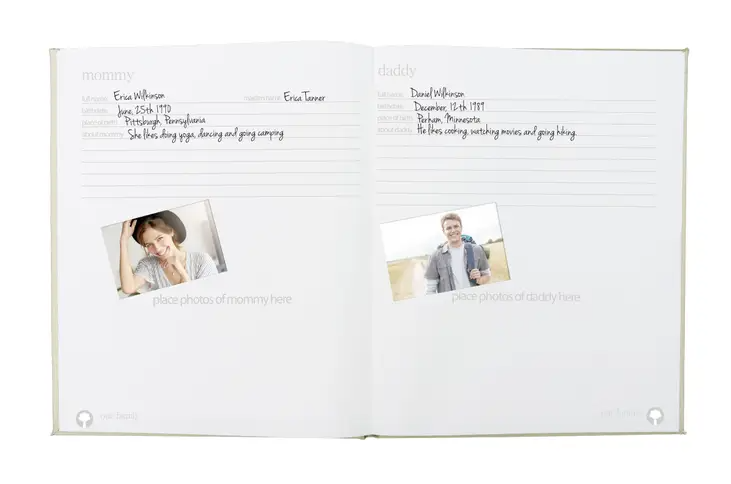 mommy
full name: Erica Wilkinson maiden name: Erica Tanner
birthdate: June, 25th 1990
place of birth: Pittsburgh, Pennsylvania
about mommy: She likes doing yoga, dancing and going camping
place photos of mommy here
our family
daddy
full name: Daniel Wilkinson
birthdate: December, 12th 1989
place of birth: Perham, Minnesota
about daddy: He likes cooking, watching movies and going hiking.
place photos of daddy here
our family